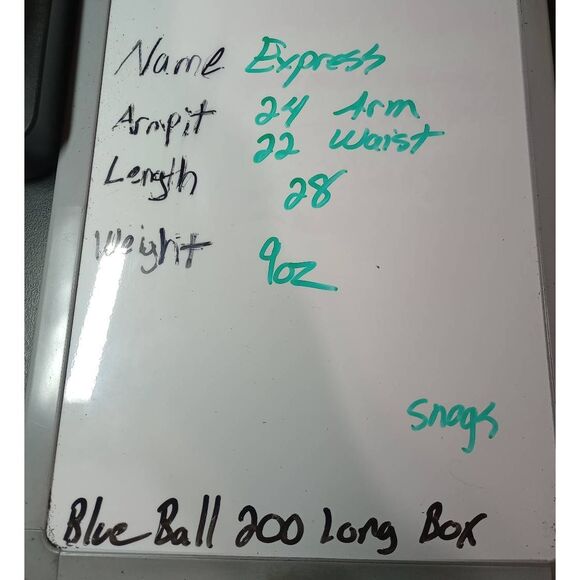 Name Express
Armpit 24 Arm
22 Waist
Length 28
Weight 9oz
Snags
Blue Ball 200 Long Box